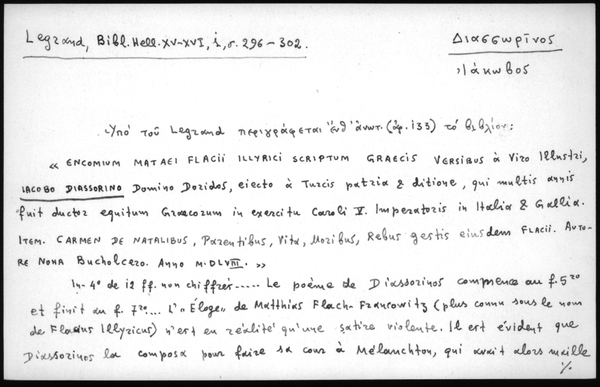 Legrand, Bibl. Hell. XV-XVI, i, σ. 296-302.
Διασσωρῖνος
Ἰάκωβος
Ὑπό τοῦ Legrand περιγράφεται ἐνθ' ἀνωτ. (ἀρ. 133) τό βιβλίον:
« ENCOMIUM MATAEI FLACII ILLYRICI SCRIPTUM GRAECIS VERSIBUS à Viro Illustri,
IACOBO DIASSORINO Domino Doridos, eiecto à Turcis patria & ditione, qui multis annis
fuit ductor equitum Graecorum in exercitu Caroli V. Imperatoris in Italia & Gallia.
ITEM. CARMEN DE NATALIBUS, Parentibus, Vita, Moribus, Rebus gestis eiusdem FLACII. AUTO-
RE NONA Bucholcero. Anno M.DLVIII. »
In-4° de 12 ff. non chiffrés..... Le poème de Diassorinos commence au f. 5ro
et finit au f. 7ro... L'"Éloge" de Matthias Flach-Francowitz (plus connu sous le nom
de Flacius Illyricus) n'est en réalité qu'une satire violente. Il est évident que
Diassorinos la composa pour faire sa cour à Mélanchton, qui avait alors maille
%.